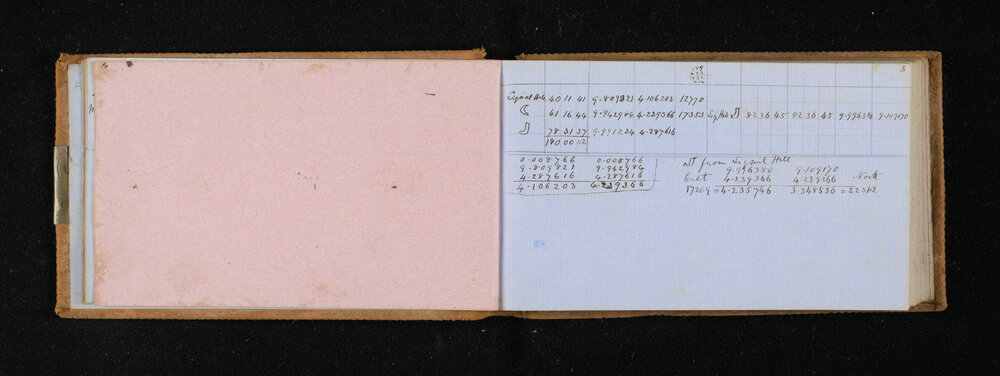 5
Signal Hill 40 11 41 9.809821 4.106203 12770
61 16 44 9.942984 4.239366 17353 Sig Hill 82 36 45 82 36 45 9.996380 9.109170
78 31 37 9.991234 4.287616
180 00 02
0.008766 0.008766
9.809821 9.942984
4.287616 4.287616
4.106203 4.239366
from Signal Hill
9.996380 9.109170
East 4.239366 4.239366 North
17209 = 4.235746 3.348536 = 2231.2